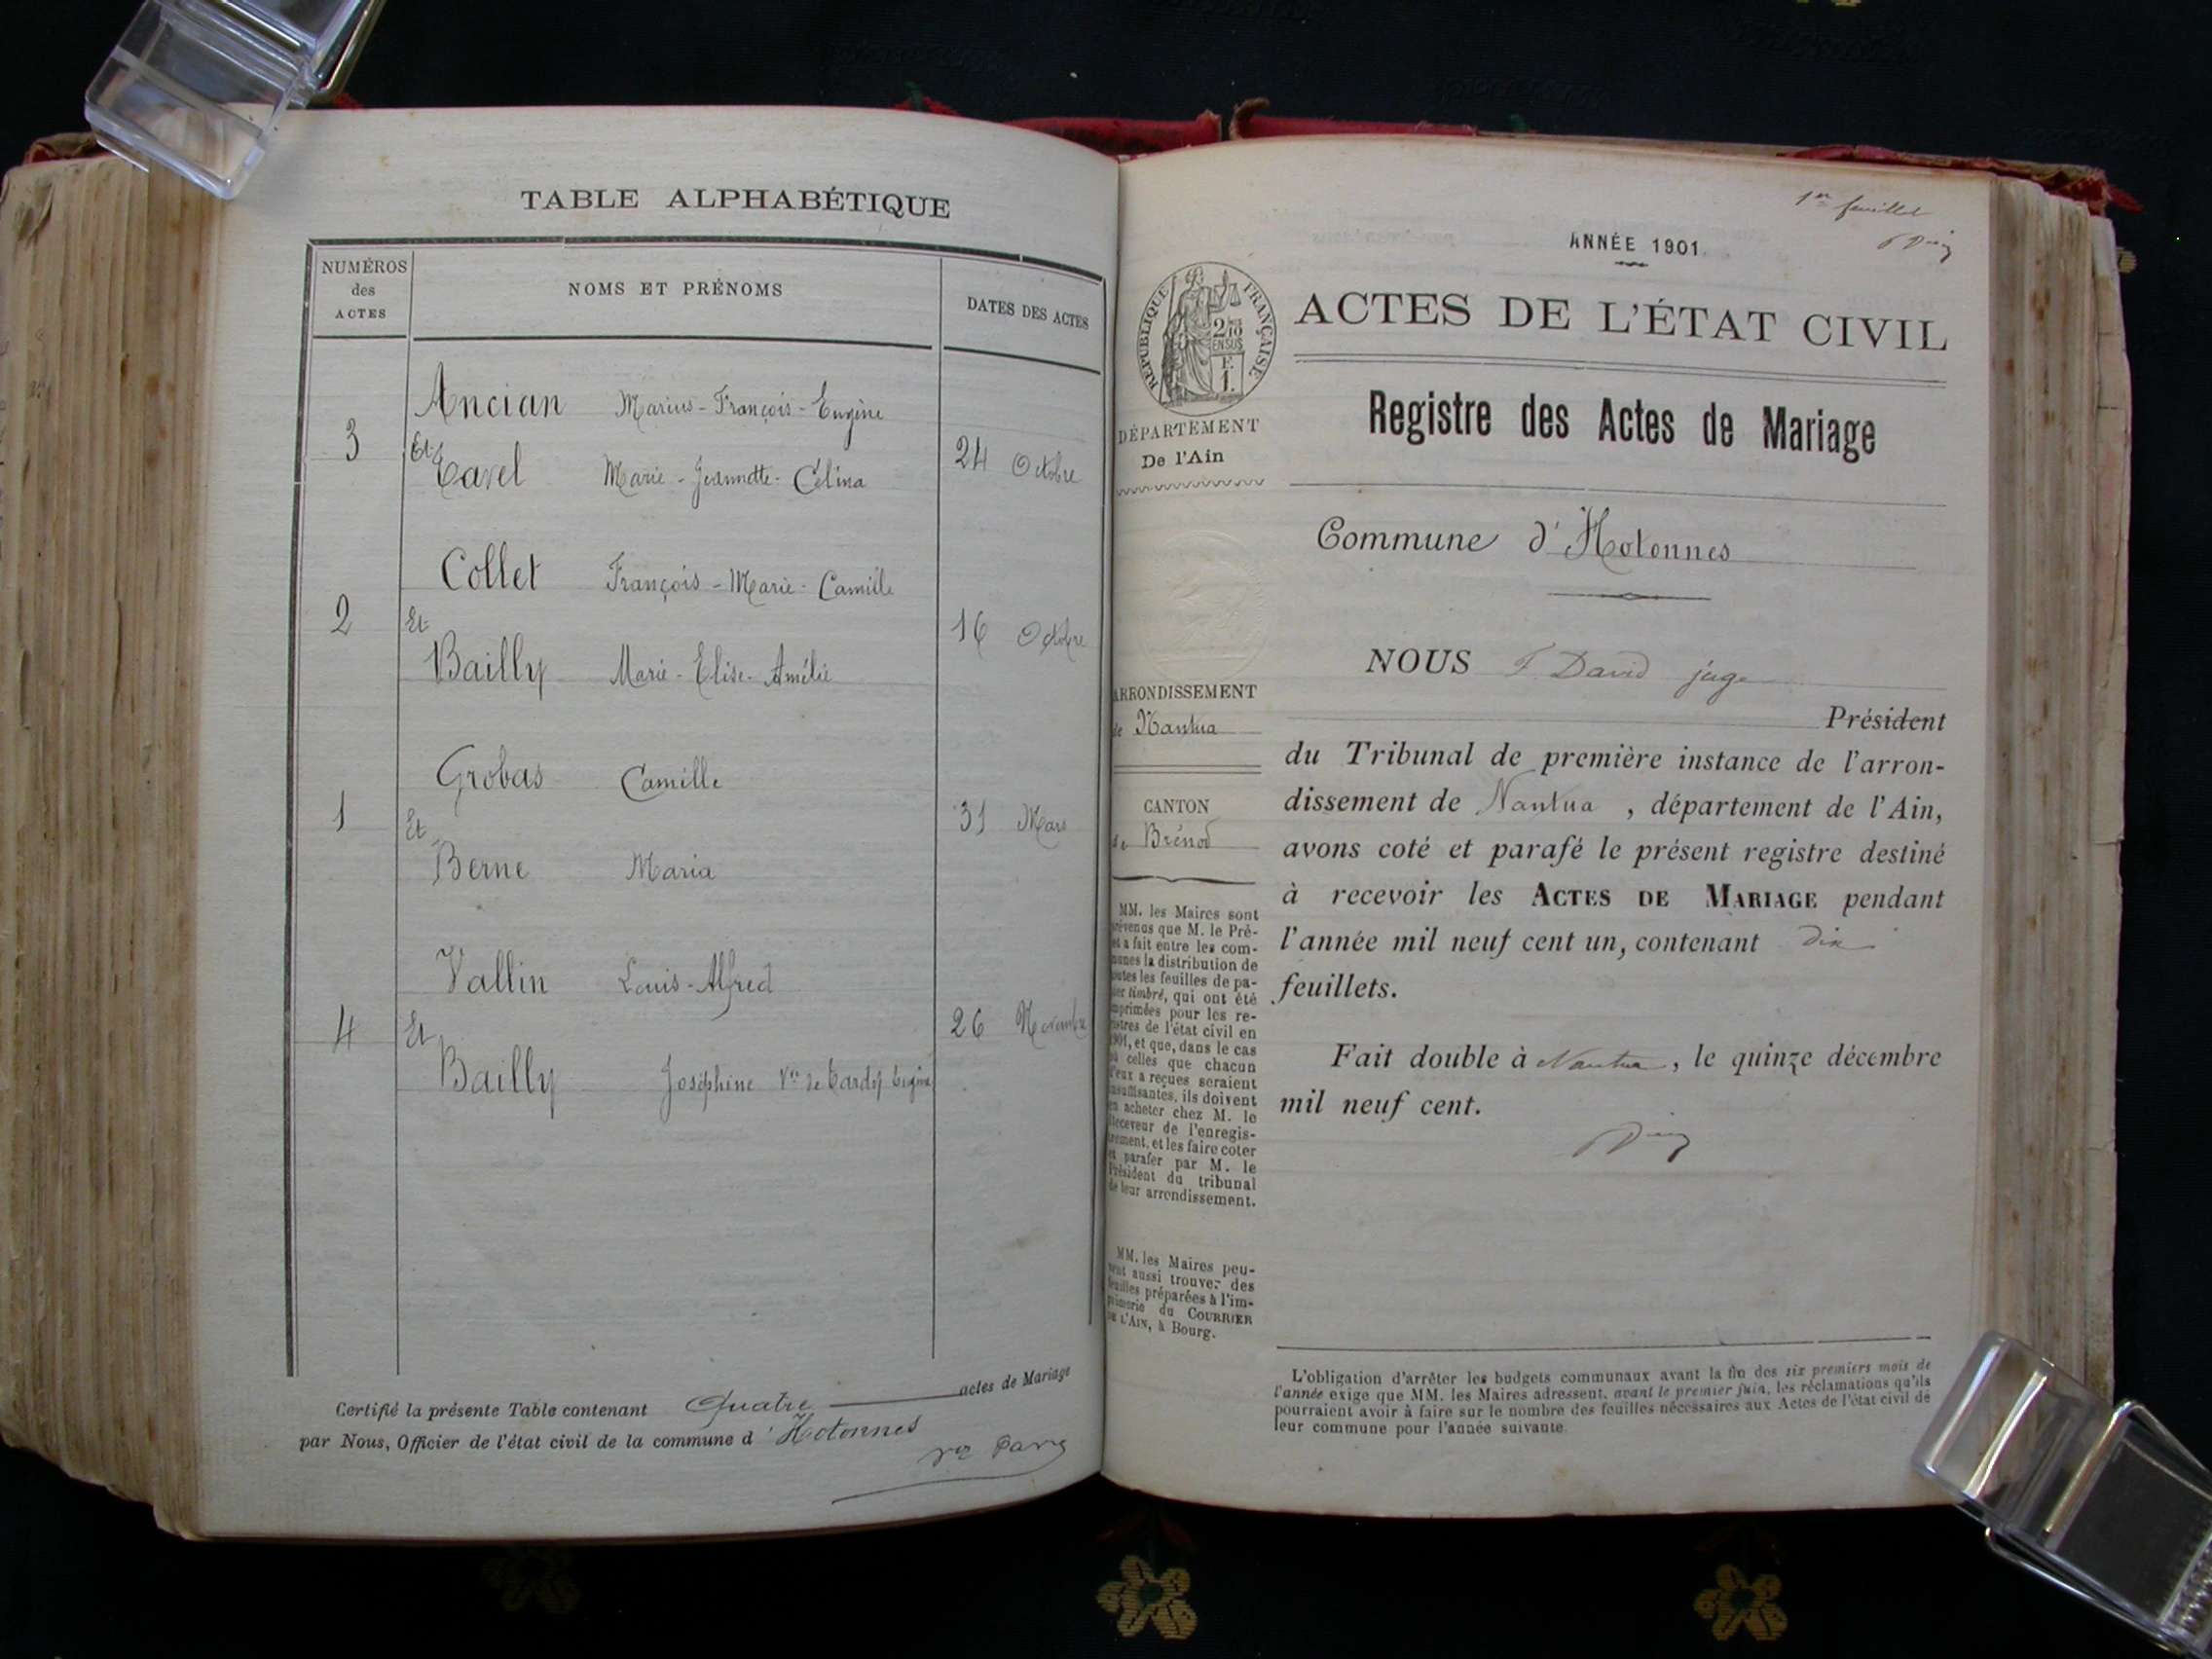 TABLE ALPHABÉTIQUE
NUMÉROS
des
ACTES
NOMS ET PRÉNOMS
DATES DES ACTES
Ancian Marius-François-Eugène
3 Et 24 Octobre
Cavel Marie-Jeannette-Célina
Collet François-Marie-Camille
2 Et 16 Octobre
Bailly Marie-Elise-Amélie
Grobas Camille
1 Et 31 Mars
Berne Maria
Vallin Louis-Alfred
4 Et 26 Novembre
Bailly Joséphine Vve de Tardy Eugène
Certifié la présente Table contenant Quatre actes de Mariage
par Nous, Officier de l'état civil de la commune d'Hotonnes
1er feuillet
ANNÉE 1901.
RÉPUBLIQUE FRANÇAISE
ACTES DE L'ÉTAT CIVIL
Registre des Actes de Mariage
DÉPARTEMENT
De l'Ain
Commune d'Hotonnes
ARRONDISSEMENT
de Nantua
CANTON
de Brénod
NOUS F David juge
Président
du Tribunal de première instance de l'arron-
dissement de Nantua, département de l'Ain,
avons coté et parafé le présent registre destiné
à recevoir les ACTES DE MARIAGE pendant
l'année mil neuf cent un, contenant dix
feuillets.
Fait double à Nantua, le quinze décembre
mil neuf cent.
MM. les Maires sont
prévenus que M. le Pré-
fet a fait entre les com-
munes la distribution de
toutes les feuilles de pa-
pier timbré, qui ont été
imprimées pour les re-
gistres de l'état civil en
1901, et que, dans le cas
où celles que chacun
d'eux a reçues seraient
insuffisantes, ils doivent
en acheter chez M. le
Receveur de l'enregis-
trement, et les faire coter
et parafer par M. le
Président du tribunal
de leur arrondissement.
MM. les Maires peu-
vent aussi trouver des
feuilles préparées à l'im-
primerie du COURRIER
DE L'AIN, à Bourg.
L'obligation d'arrêter les budgets communaux avant la fin des six premiers mois de
l'année exige que MM. les Maires adressent, avant le premier juin, les réclamations qu'ils
pourraient avoir à faire sur le nombre des feuilles nécessaires aux Actes de l'état civil de
leur commune pour l'année suivante.